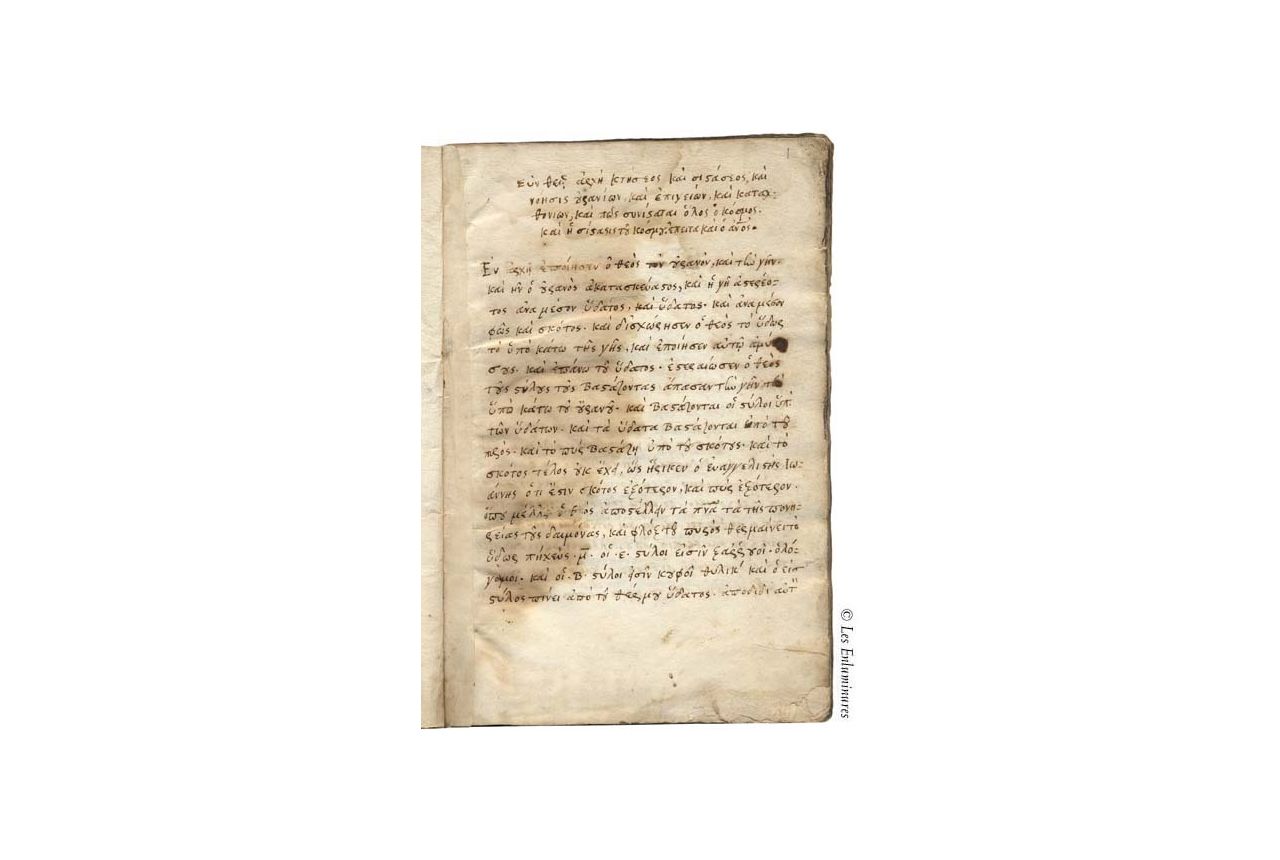 1
Σὺν θεῷ ἀρχὴ κτήσεος καὶ σιστάσεος, καὶ
νοησις οὐρανίων, καὶ ἐπιγείων, καὶ καταχ-
θονίων, καὶ πῶς συνίσταται ὅλος ὁ κόσμος.
καὶ ἡ σίστασις τοῦ κόσμου. ἔπειτα καὶ ὁ ἀνος.
Ἐν ἀρχῇ ἐποίησεν ὁ θεὸς τὸν οὐρανὸν, καὶ τὴν γῆν.
καὶ ἦν ὁ οὐρανὸς ἀκατασκεύαστος, καὶ ἡ γῆ ἀστερέο-
τος ἀνα μέσον ὕδατος, καὶ ὕδατος. καὶ ἀνα μέσον
φῶς καὶ σκότος. καὶ δισχώρησεν ὁ θεὸς τὸ ὕδωρ
τὸ ὑπὸ κάτω τῆς γῆς, καὶ ἐποίησεν αὐτῷ ἀμύ
σους. καὶ ἐπάνω τοῦ ὕδατος. ἐστεραίωσεν ὁ θεὸς
τοὺς στύλους τῆς βαστάζοντας ἅπασαν τὴν γῆν
ὑπὸ κάτω τοῦ οὐρανοῦ. καὶ βαστάζονται οἱ στύλοι ὑπὸ
τῶν ὑδάτων. καὶ τὰ ὕδατα βαστάζονται ὑπὸ τοῦ
πρός. καὶ τὸ πῦρ βαστάζη ὑπὸ τοῦ σκότους. καὶ τὸ
σκότος τέλος οὐκ ἔχει, ὡς ἤρικεν ὁ εὐαγγελιστὴς Ἰω-
άννης ὅτι ἔστιν σκότος ἐξότερον, καὶ πῦρ ἐξότερον.
ὅπου μέλλει ὁ θεὸς ἀποστέλλειν τὰ πνα τὰ τῆς πονη-
ρείας τοὺς δαίμονας, καὶ φλὸξ τοῦ πυρὸς θερμαίνει τὸ
ὕδωρ πήχεως .μ. οἱ .ε. στύλοι εἰσὶν
καὶ οἱ .β. στύλοι εἰσὶν κυφοὶ θυλικοὶ καὶ ὁ εἷς
στύλος πίνει ἀπὸ τοῦ θέρμου ὕδατος. ἀποδιδι αὐτ
© Les Enluminures